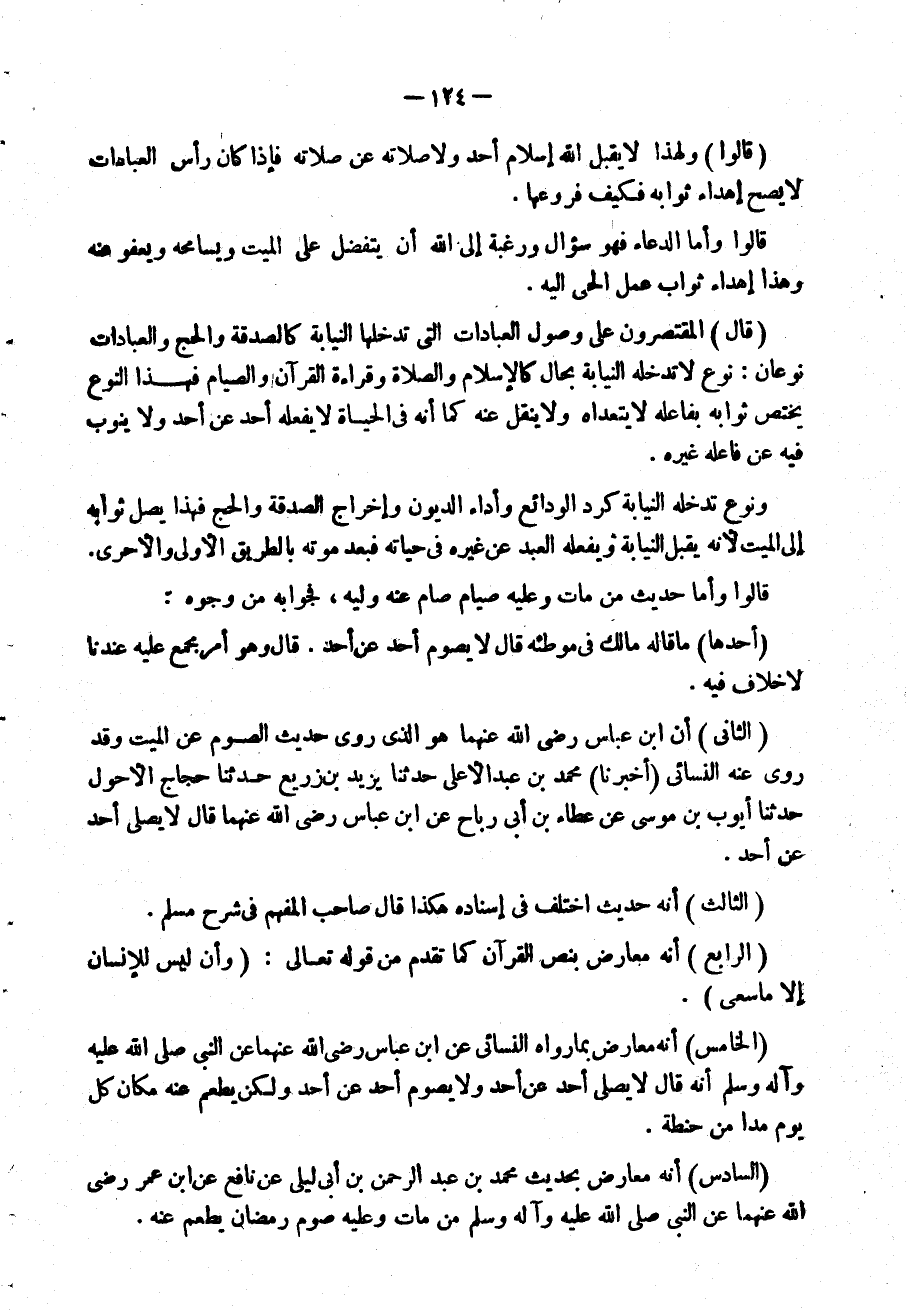 — ١٢٤ —
( قالوا ) ولهذا لا يقبل الله إسلام أحد ولا صلاته عن صلاته فإذا كان رأس العبادات
لا يصح إهداء ثوابه فكيف فروعها .
قالوا وأما الدعاء فهو سؤال ورغبة إلى الله أن يتفضل على الميت ويسامحه ويعفو عنه
وهذا إهداء ثواب عمل الحى اليه .
( قال ) المقتصرون على وصول العبادات التى تدخلها النيابة كالصدقة والحج والعبادات
نوعان : نوع لا تدخله النيابة بحال كالإسلام والصلاة وقراءة القرآن والصيام فهذا النوع
يختص ثوابه بفاعله لا يتعداه ولا ينقل عنه كما أنه فى الحياة لا يفعله أحد عن أحد ولا ينوب
فيه عن فاعله غيره .
ونوع تدخله النيابة كرد الودائع وأداء الديون وإخراج الصدقة والحج فهذا يصل ثوابه
إلى الميت لأنه يقبل النيابة ويفعله العبد عن غيره فى حياته فبعد موته بالطريق الاولى والاحرى.
قالوا وأما حديث من مات وعليه صيام صام عنه وليه ، فجوابه من وجوه :
(أحدها) ماقاله مالك فى موطئه قال لا يصوم أحد عن أحد . قال وهو أمر مجمع عليه عندنا
لا خلاف فيه .
( الثانى ) أن ابن عباس رضى الله عنهما هو الذى روى حديث الصوم عن الميت وقد
روى عنه النسائى (أخبرنا) محمد بن عبد الاعلى حدثنا يزيد بن زريع حدثنا حجاج الاحول
حدثنا أيوب بن موسى عن عطاء بن أبى رباح عن ابن عباس رضى الله عنهما قال لا يصلى أحد
عن أحد .
( الثالث ) أنه حديث اختلف فى إسناده هكذا قال صاحب المفهم فى شرح مسلم .
( الرابع ) أنه معارض بنص القرآن كما تقدم من قوله تعالى : ( وأن ليس للإنسان
إلا ماسعى ) .
(الخامس) أنه معارض بمارواه النسائى عن ابن عباس رضى الله عنهما عن النبى صلى الله عليه
وآله وسلم أنه قال لا يصلى أحد عن أحد ولا يصوم أحد عن أحد ولكن يطعم عنه مكان كل
يوم مدا من حنطة .
(السادس) أنه معارض بحديث محمد بن عبد الرحمن بن أبى ليلى عن نافع عن ابن عمر رضى
الله عنهما عن النبى صلى الله عليه وآله وسلم من مات وعليه صوم رمضان يطعم عنه .